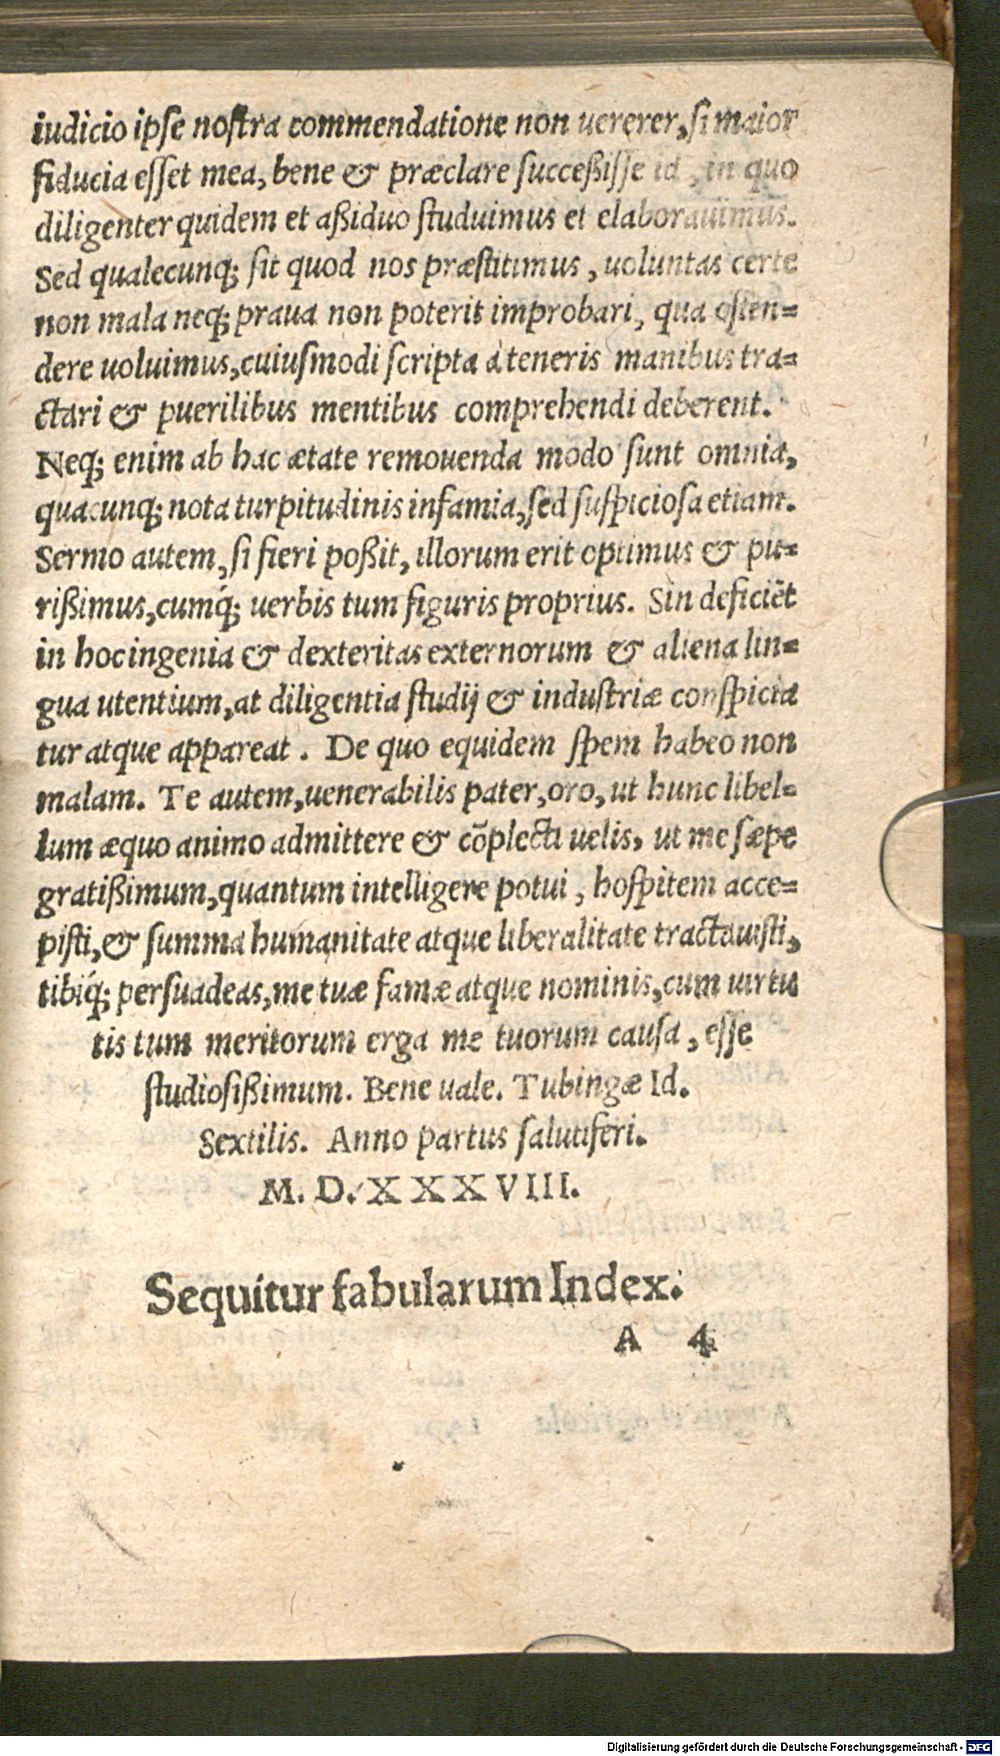 iudicio ipse nostra commendatione non uererer, si maior
fiducia esset mea, bene & præclare succeßisse id, in quo
diligenter quidem et aßiduo studuimus et elaborauimus.
Sed qualecunq; sit quod nos præstitimus, uoluntas certe
non mala neq; praua non poterit improbari, qua osten=
dere uoluimus, cuiusmodi scripta à teneris manibus tra=
ctari & puerilibus mentibus comprehendi deberent.
Neq; enim ab hac ætate remouenda modo sunt omnia,
quæcunq; nota turpitudinis infamia, sed suspiciosa etiam.
Sermo autem, si fieri poßit, illorum erit optimus & pu=
rißimus, cumq́; uerbis tum figuris proprius. Sin deficiẽt
in hoc ingenia & dexteritas externorum & aliena lin=
gua utentium, at diligentia studij & industriæ conspicia
tur atque appareat. De quo equidem spem habeo non
malam. Te autem, uenerabilis pater, oro, ut hunc libel=
lum æquo animo admittere & cõplecti uelis, ut me sæpe
gratißimum, quantum intelligere potui, hospitem acce=
pisti, & summa humanitate atque liberalitate tractauisti,
tibiq́; persuadeas, me tuæ famæ atque nominis, cum uirtu
tis tum meritorum erga me tuorum causa, esse
studiosißimum. Bene uale. Tubingæ Id.
Sextilis. Anno partus salutiferi.
M. D. XXXVIII.
Sequitur fabularum Index.
A 4
Digitalisierung gefördert durch die Deutsche Forschungsgemeinschaft - DFG